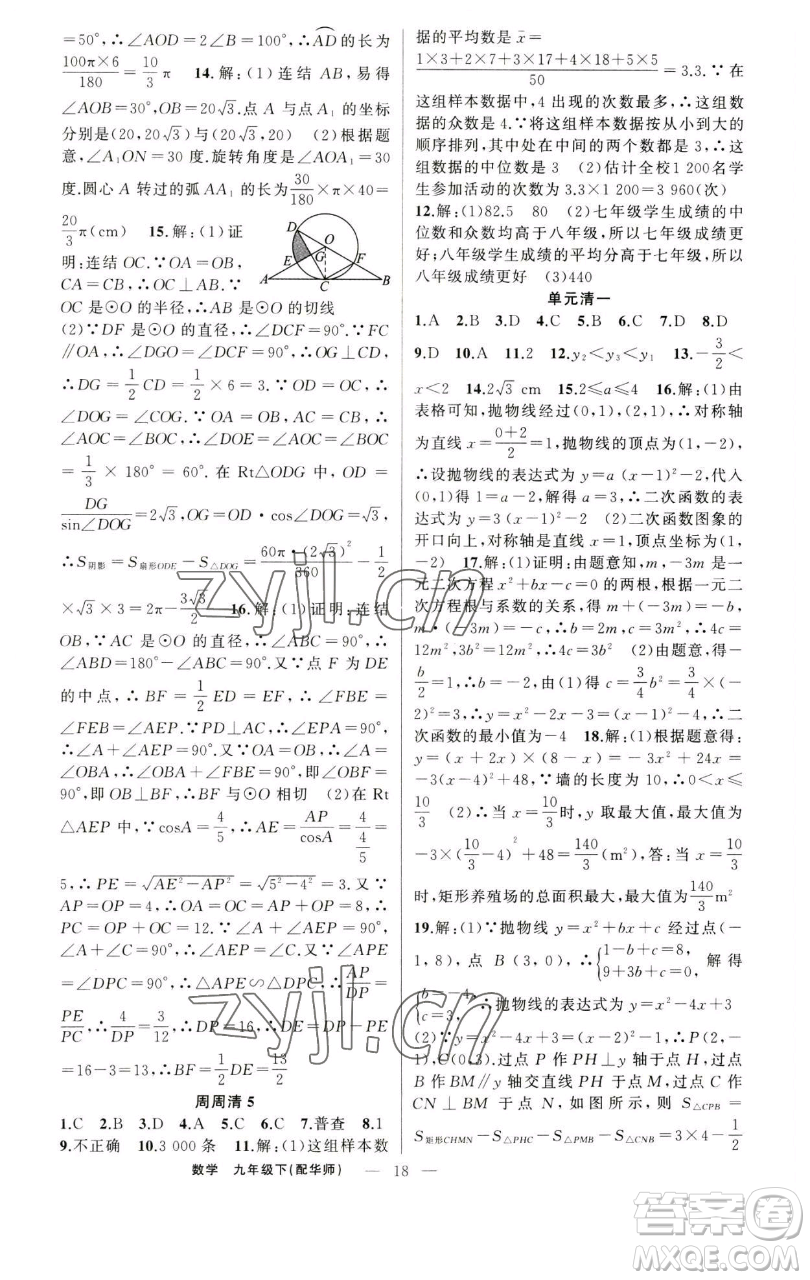 =50°,∴∠AOD=2∠B=100°,∴AD⌒的长为
100π×6/180=10/3π　14.解:(1)连结 AB,易得
∠AOB=30°,OB=20√3.点 A 与点 A₁ 的坐标
分别是(20,20√3)与(20,20)　(2)根据题
意,∠A₁ON=30 度.旋转角度是∠AOA₁=30
度.圆心 A 转过的弧 AA₁ 的长为30/180×π×40=
20/3π(cm)　15.解:(1)证
明:连结 OC.∵OA=OB,
CA=CB,∴OC⊥AB.∵
OC 是⊙O 的半径,∴AB 是⊙O 的切线
D O G E F A C B
(2)∵DF 是⊙O 的直径,∴∠DCF=90°.∵FC
∥OA,∴∠DGO=∠DCF=90°,∴OG⊥CD,
∴DG=1/2CD=1/2×6=3.∴∠DOE=
∠DOG=∠COG.∵OA=OB,AC=CB,∴
∠AOC=∠BOC,∴∠DOE=∠AOC=∠BOC=
1/3×180°=60°.在 Rt△ODG 中,OD=
DG/sin∠DOG=2√3,OG=OD·cos∠DOG=√3,
∴S阴影=S扇形ODE-S△DOG=60π·(2√3)²/360-1/2
×√3×3=2π-3√3/2　16.解:(1)证明:连结
OB,∵AC 是⊙O 的直径,∴∠ABC=90°,∴
∠ABD=180°-∠ABC=90°.又∵点 F 为 DE
的中点,∴BF=1/2ED=EF,∴∠FBE=
∠FEB=∠AEP.∵PD⊥AC,∴∠EPA=90°,
∴∠A+∠AEP=90°.∵OA=OB,∴∠A=
∠OBA,∴∠OBA+∠FBE=90°,即∠OBF=
90°,即 OB⊥BF,∴BF 与⊙O 相切　(2)在 Rt
△AEP 中,∵cosA=4/5,∴AE=AP/cosA=4/(4/5)=
5,∴PE=√(AE²-AP²)=√(5²-4²)=3.又∵
AP=OP=4,∴OA=OC=AP+OP=8,∴
PC=OP+OC=12.∵∠A+∠AEP=90°,
∠A+∠C=90°,∴∠AEP=∠C.又∵∠APE
=∠DPC=90°,∴△APE∽△DPC,∴AP/DP=
PE/PC,∴4/DP=3/12,∴DP=16,∴DE=DP-PE
=16-3=13,∴BF=1/2DE=13/2
周周清 5
1.C　2.B　3.D　4.A　5.C　6.C　7.普查　8.1
9.不正确　10.3 000 条　11.解:(1)这组样本数
据的平均数是 x̄=
(1×3+2×7+3×17+4×18+5×5)/50=3.3.∵在
这组样本数据中,4 出现的次数最多,∴这组数
据的众数是 4.∵将这组样本数据按从小到大的
顺序排列,其中处在中间的两个数都是 3,∴这
组数据的中位数是 3　(2)估计全校 1 200 名学
生参加活动的次数为 3.3×1 200=3 960(次)
12.解:(1)82.5　80　(2)七年级学生成绩的中
位数和众数均高于八年级,所以七年级成绩更
好;八年级学生成绩的平均分高于七年级,所以
八年级成绩更好　(3)440
单元清一
1.A　2.B　3.D　4.C　5.B　6.C　7.D　8.D
9.D　10.A　11.2　12.y₂<y₃<y₁　13.-3/2<
x<2　14.2√3 cm　15.2≤a≤4　16.解:(1)由
表格可知,抛物线经过(0,1),(2,1),∴对称轴
为直线 x=(0+2)/2=1,抛物线的顶点为(1,-2),
∴设抛物线的表达式为 y=a(x-1)²-2,代入
(0,1)得 1=a-2,解得 a=3,∴二次函数的表
达式为 y=3(x-1)²-2　(2)二次函数图象的
开口向上,对称轴为直线 x=1,顶点坐标为(1,
-2)　17.解:(1)证明:由题意知,m,-3m 是一
元二次方程 x²+bx-c=0 的两根,根据一元二
次方程根与系数的关系,得 m+(-3m)=-b,
m·(-3m)=-c,∴b=2m,c=3m²,∴4c=
12m²,3b²=12m²,∴4c=3b²　(2)由题意,得-
b/2=1,∴b=-2.由(1)得 c=3/4b²=3/4×(-
2)²=3,∴y=x²-2x-3=(x-1)²-4,∴二
次函数的最小值为-4　18.解:(1)根据题意得:
y=(x+2x)×(8-x)=-3x²+24x=
-3(x-4)²+48,∵墙的长度为 10,∴0<x≤
10/3　(2)∴当 x=10/3时,y 取最大值,最大值为
-3×(10/3-4)²+48=140/3(m²),答:当 x=10/3
时,矩形养殖场的总面积最大,最大值为140/3m²
19.解:(1)∵抛物线 y=x²+bx+c 经过点(-
1,8),点 B(3,0),∴{1-b+c=8, 9+3b+c=0,∴
{b=-4, c=3,∴抛物线的表达式为 y=x²-4x+3
(2)∵y=x²-4x+3=(x-2)²-1,∴P(2,-
1),C(0,3).过点 P 作 PH⊥y 轴于点 H,过点
B 作 BM∥y 轴交直线 PH 于点 M,过点 C 作
CN⊥BM 于点 N,如图所示,则 S△CPB=
S矩形CHMN-S△PHC-S△PMB-S△CNB=3×4-1/2
数学　九年级下(配华师)　— 18 —
zyjl.cn
zyjl.cn
答案圈
MXQE.COM